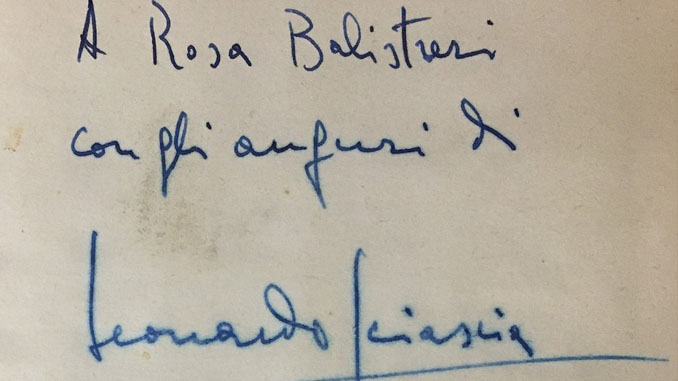 A Rosa Balistreri
con gli auguri di
Leonardo Sciascia